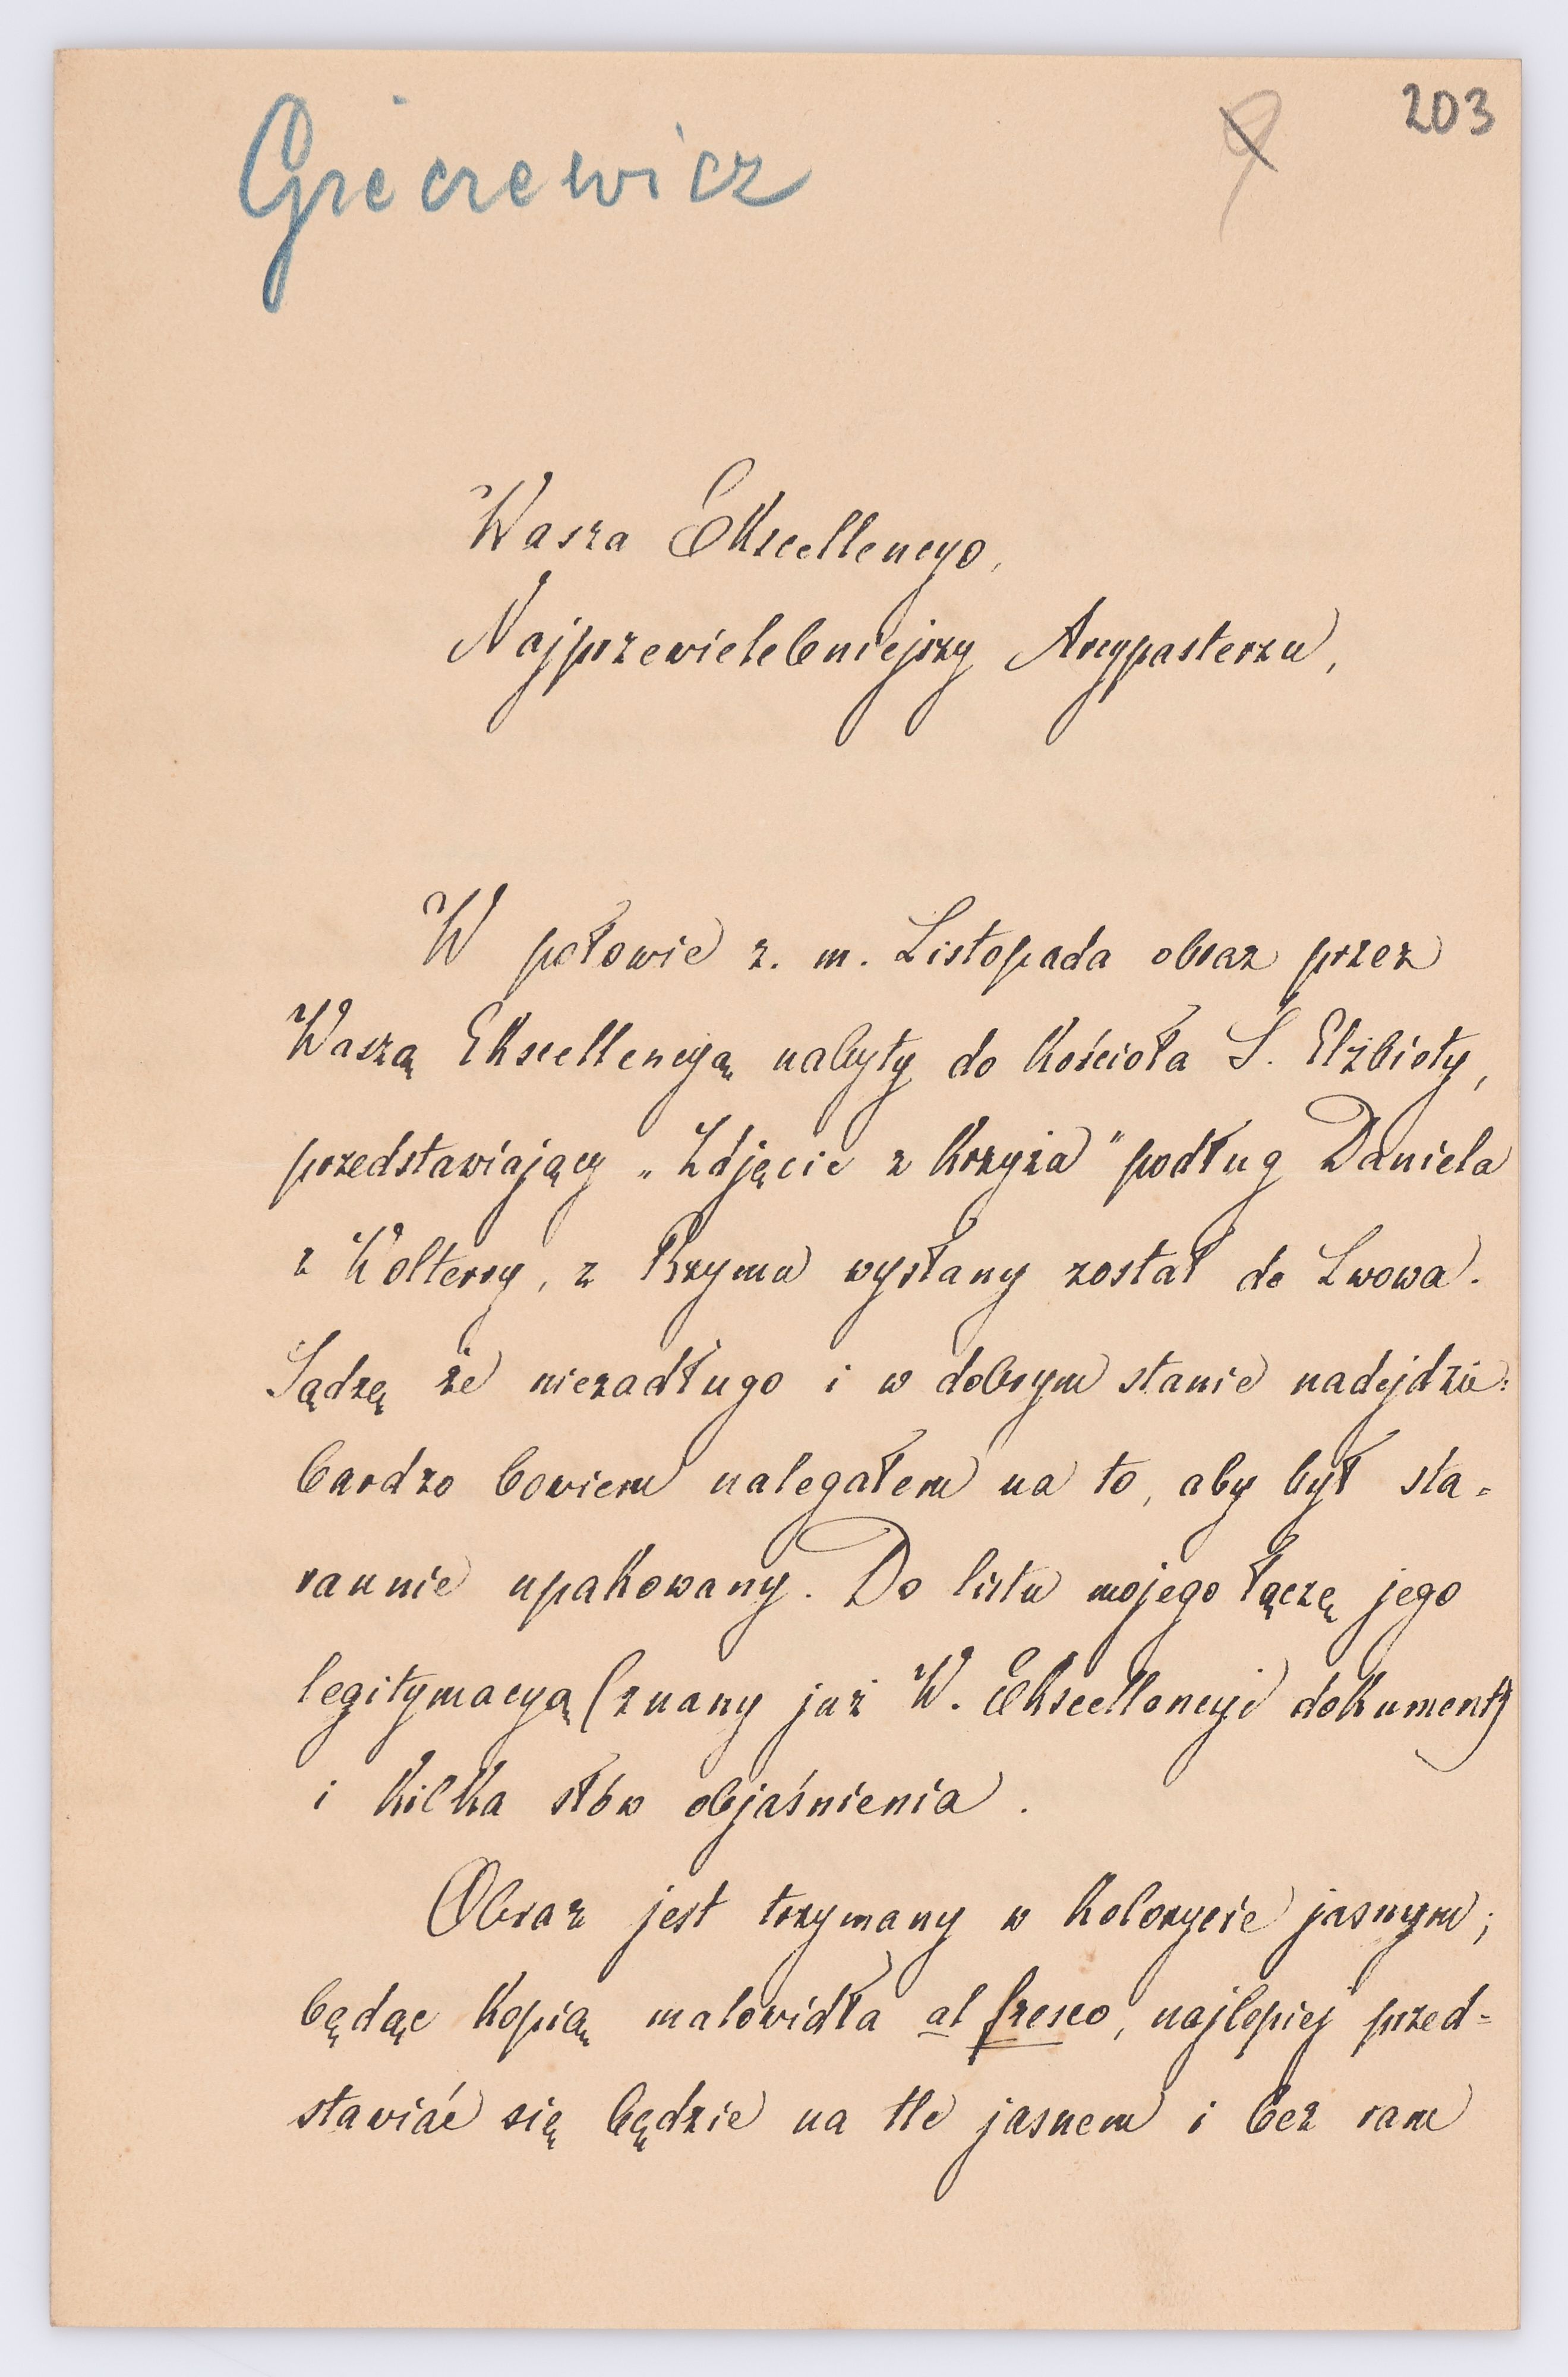 203
Grécrewicz
Wasza Ekscellencyo,
Najprzewielebniejszy Arcypasterzu,
W połowie z. m. Listopada obraz przez
Waszą Ekscellencyą nabyty do Kościoła Ś. Elżbiety,
przedstawiający „Zdjęcie z Krzyża" podług Daniela
z Wolterry, z Rzymu wysłany został do Lwowa.
Sądzę że niezadługo i w dobrym stanie nadejdzie:
bardzo bowiem nalegałem na to, aby był sta=
rannie upakowany. Do listu mojego łączę jego
legitymacyą (znany już W. Ekscellencyi dokument)
i kilka słów objaśnienia.
Obraz jest trzymany w kolorycie jasnym;
będąc kopią malowidła al fresco, najlepiej przed=
stawiać się będzie na tle jasnem i bez ram